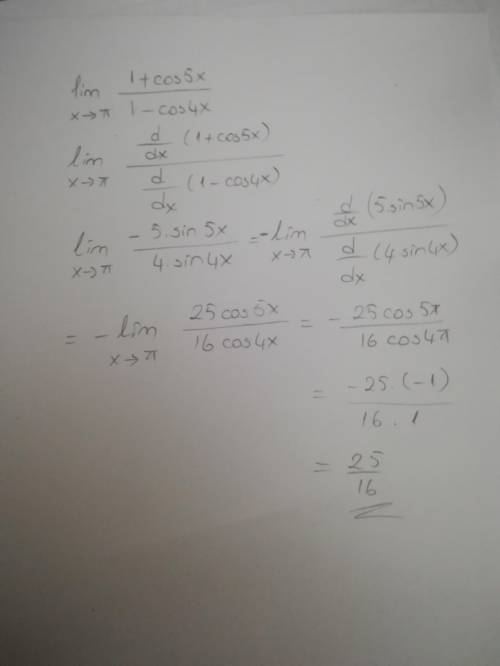 lim x→π (1+cos5x)/(1-cos4x)
lim x→π (d/dx (1+cos5x))/(d/dx (1-cos4x))
lim x→π (-5.sin 5x)/(4.sin4x) = -lim x→π (d/dx (5.sin5x))/(d/dx (4 sin4x))
= -lim x→π (25 cos5x)/(16 cos4x) = - (25 cos5π)/(16 cos4π)
= (-25.(-1))/(16 . 1)
= 25/16